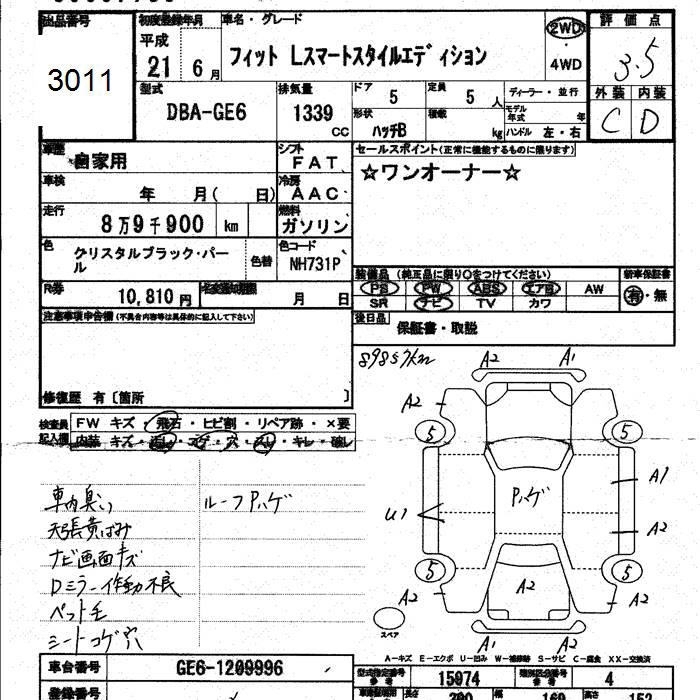 出品番号
3011
初度登録年月
平成
21 6 月
車名・グレード
フィット Lスマートスタイルエディション
2WD
4WD
評価点
3.5
外装 内装
C D
型式
DBA-GE6
排気量
1339
CC
ドア
5
定員
5 人
形状
ハッチB
積載
kg
ディーラー・並行
モデル年式 年
ハンドル 左・右
車歴
自家用
シフト
FAT
車検
年 月( 日)
冷房
AAC
走行
8万9千900 km
燃料
ガソリン
色
クリスタルブラック・パール
色替
色コード
NH731P
R券
10,810円
名変通知期限
月 日
セールスポイント(正常に機能するものに限ります)
☆ワンオーナー☆
装備品 (純正品に限り○をつけてください)
PS PW ABS エアB AW
SR ナビ TV カワ
新車保証書
有・無
後日品
保証書・取説
注意事項申告欄(不具合内容等は具体的に記入して下さい)
修復歴 有〔箇所 〕
検査員記入欄
FW キズ・飛石・ヒビ割・リペア跡・×要
内装 キズ・汚レ・コゲ・穴・スレ・キレ・破レ
車内臭い
天張黄ばみ
ナビ画面キズ
Dミラー作動不良
ペット毛
シートコゲ穴
ルーフPハゲ
89857km
A2 A1
A2
5 5
U1
Pハゲ
A1
A2
5 5
A2
A2
A2
A1 A2
スペア
A-キズ E-エクボ U-凹み W-補修跡 S-サビ C-腐食 XX-交換済
車台番号
GE6-1209996
型式指定番号
参考
15974
類別区分番号
参考
4
登録番号
長さ
390
幅
169
高さ
152